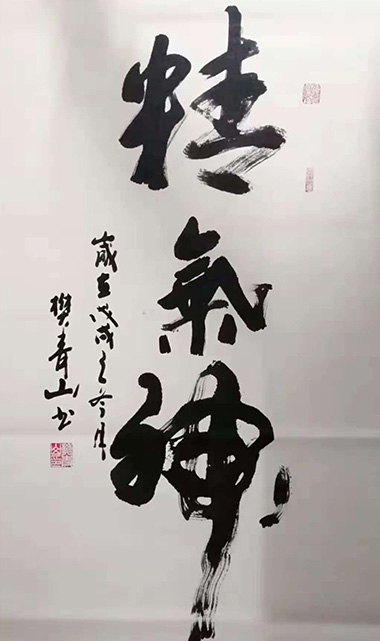 精氣神
歲在戊戌之冬月
樊青山书